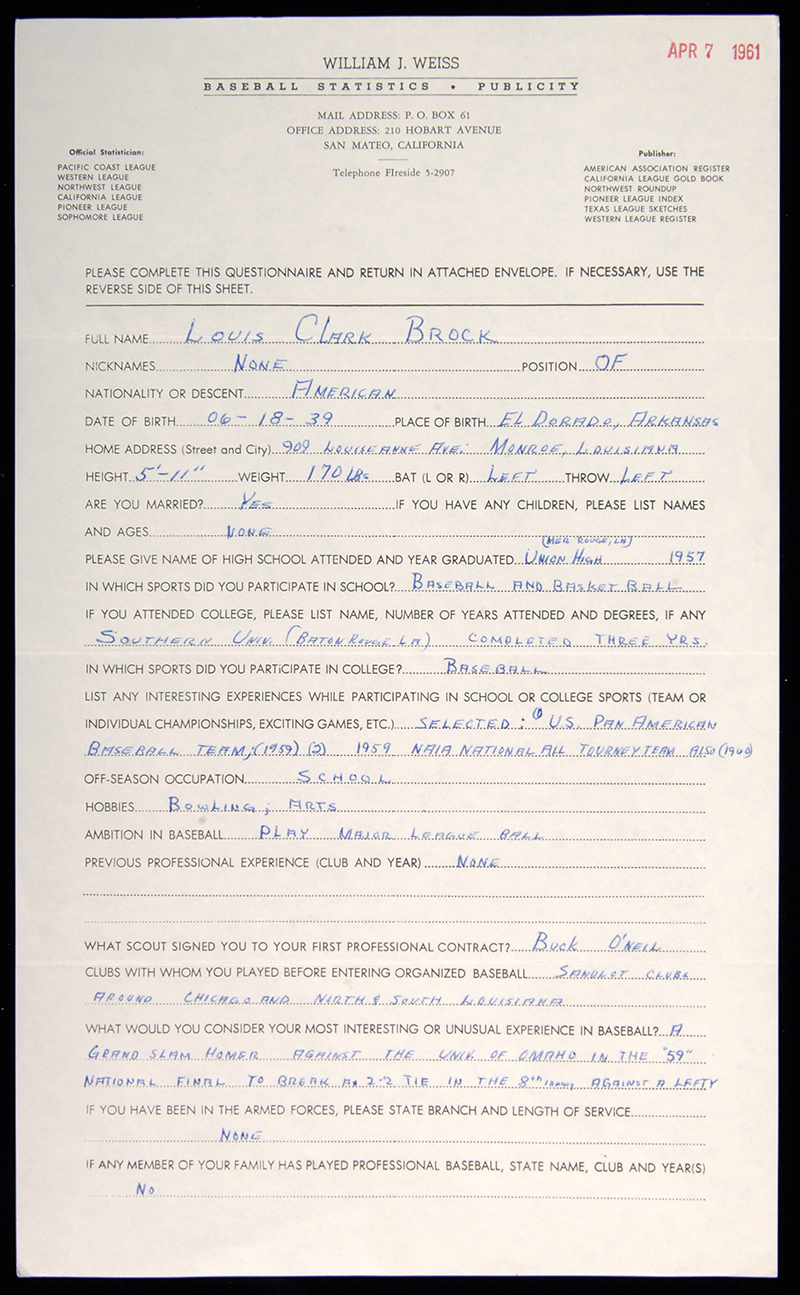 APR 7 1961
WILLIAM J. WEISS
BASEBALL STATISTICS • PUBLICITY
MAIL ADDRESS: P. O. BOX 61
OFFICE ADDRESS: 210 HOBART AVENUE
SAN MATEO, CALIFORNIA
Telephone FIreside 5-2907
Official Statistician:
PACIFIC COAST LEAGUE
WESTERN LEAGUE
NORTHWEST LEAGUE
CALIFORNIA LEAGUE
PIONEER LEAGUE
SOPHOMORE LEAGUE
Publisher:
AMERICAN ASSOCIATION REGISTER
CALIFORNIA LEAGUE GOLD BOOK
NORTHWEST ROUNDUP
PIONEER LEAGUE INDEX
TEXAS LEAGUE SKETCHES
WESTERN LEAGUE REGISTER
PLEASE COMPLETE THIS QUESTIONNAIRE AND RETURN IN ATTACHED ENVELOPE. IF NECESSARY, USE THE
REVERSE SIDE OF THIS SHEET.
FULL NAME LOUIS CLARK BROCK
NICKNAMES NONE POSITION OF
NATIONALITY OR DESCENT AMERICAN
DATE OF BIRTH 06-18-39 PLACE OF BIRTH EL DORADO, ARKANSAS
HOME ADDRESS (Street and City) 909 LOUISEANNE AVE. MONROE, LOUISIANA
HEIGHT 5'-11" WEIGHT 170 LBS BAT (L OR R) LEFT THROW LEFT
ARE YOU MARRIED? YES IF YOU HAVE ANY CHILDREN, PLEASE LIST NAMES
AND AGES NONE
(MER ROUGE, LA)
PLEASE GIVE NAME OF HIGH SCHOOL ATTENDED AND YEAR GRADUATED UNION HIGH 1957
IN WHICH SPORTS DID YOU PARTICIPATE IN SCHOOL? BASEBALL AND BASKET BALL
IF YOU ATTENDED COLLEGE, PLEASE LIST NAME, NUMBER OF YEARS ATTENDED AND DEGREES, IF ANY
SOUTHERN UNIV. (BATON ROUGE, LA) COMPLETED THREE YRS.
IN WHICH SPORTS DID YOU PARTICIPATE IN COLLEGE? BASEBALL
LIST ANY INTERESTING EXPERIENCES WHILE PARTICIPATING IN SCHOOL OR COLLEGE SPORTS (TEAM OR
INDIVIDUAL CHAMPIONSHIPS, EXCITING GAMES, ETC.) SELECTED: (1) U.S. PAN AMERICAN
BASEBALL TEAM, (1959) (2) 1959 NAIA NATIONAL ALL TOURNEY TEAM ALSO (1960)
OFF-SEASON OCCUPATION SCHOOL
HOBBIES BOWLING; ARTS
AMBITION IN BASEBALL PLAY MAJOR LEAGUE BALL
PREVIOUS PROFESSIONAL EXPERIENCE (CLUB AND YEAR) NONE
WHAT SCOUT SIGNED YOU TO YOUR FIRST PROFESSIONAL CONTRACT? BUCK O'NEIL
CLUBS WITH WHOM YOU PLAYED BEFORE ENTERING ORGANIZED BASEBALL SANDLOT CLUBS
AROUND CHICAGO AND NORTH & SOUTH LOUISIANA
WHAT WOULD YOU CONSIDER YOUR MOST INTERESTING OR UNUSUAL EXPERIENCE IN BASEBALL? A
GRAND SLAM HOMER AGAINST THE UNIV. OF OMAHO IN THE "59"
NATIONAL FINAL TO BREAK A 2-2 TIE IN THE 8th INNING AGAINST A LEFTY
IF YOU HAVE BEEN IN THE ARMED FORCES, PLEASE STATE BRANCH AND LENGTH OF SERVICE
NONE
IF ANY MEMBER OF YOUR FAMILY HAS PLAYED PROFESSIONAL BASEBALL, STATE NAME, CLUB AND YEAR(S)
NO